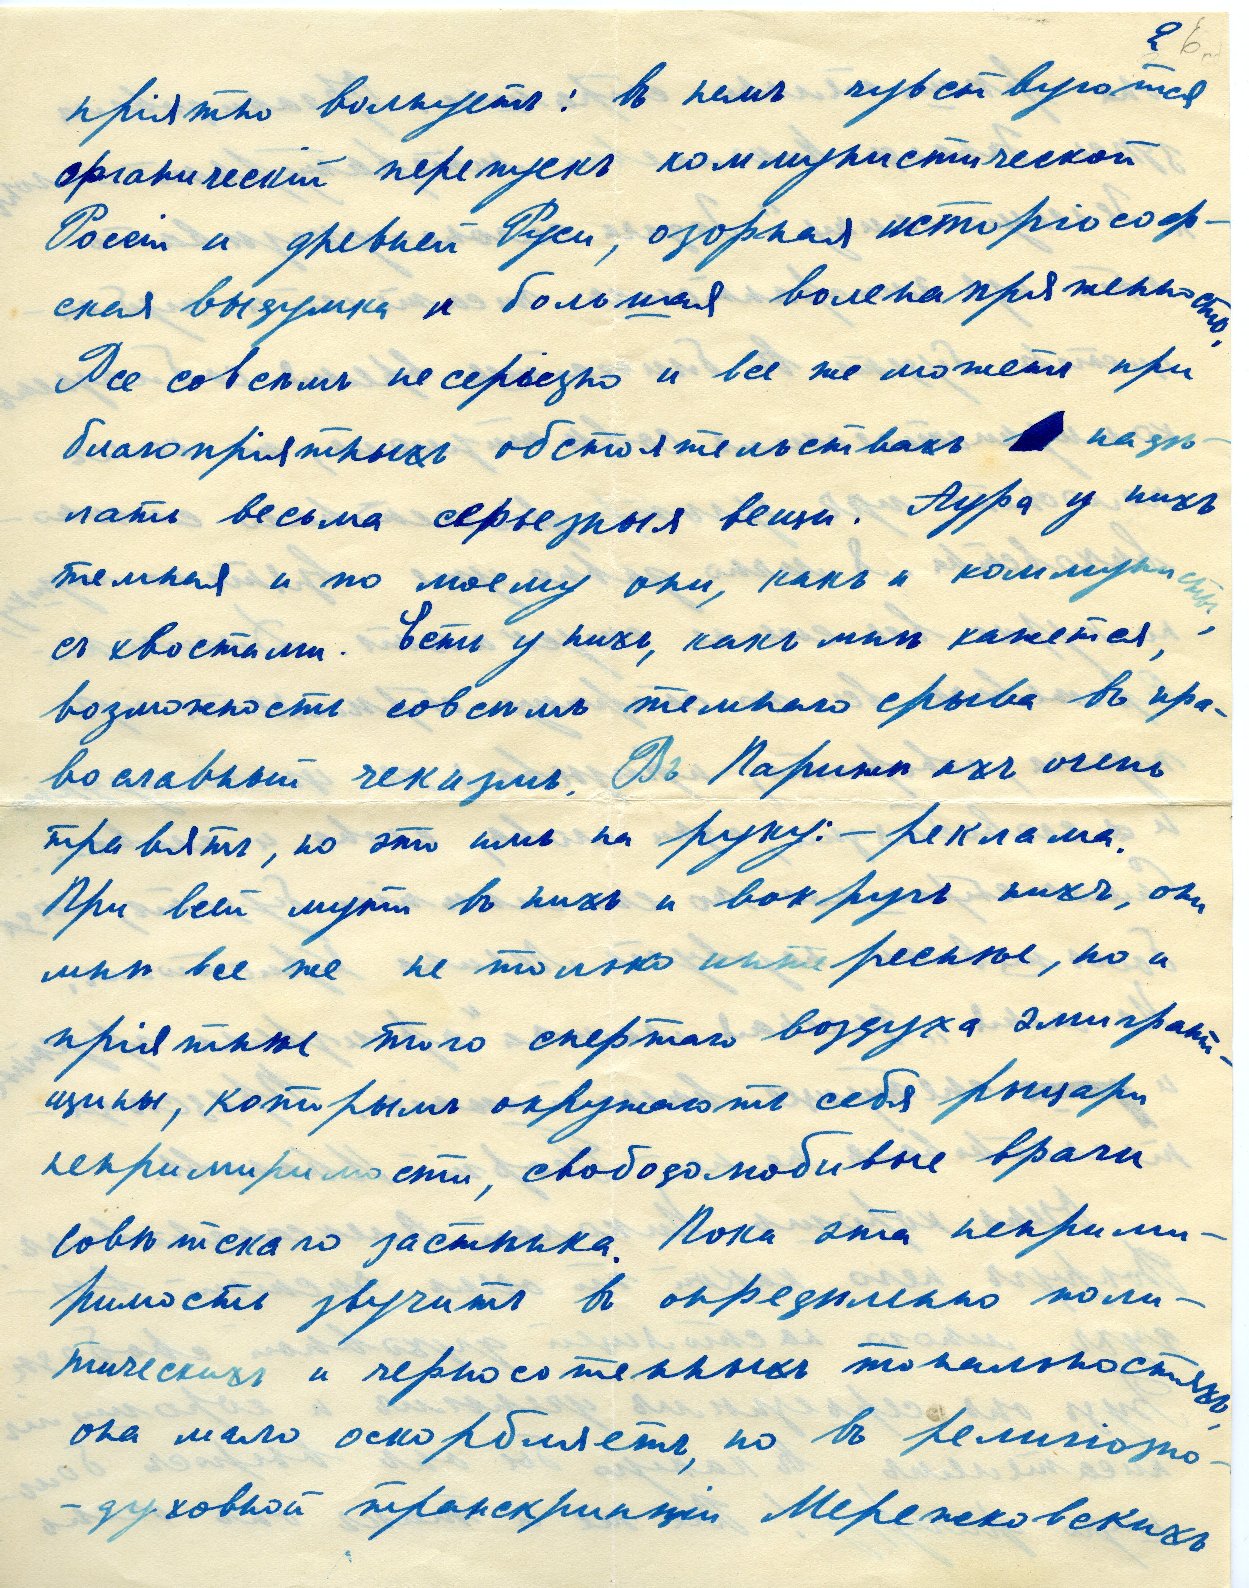 2 6
пріятно волнуетъ: въ немъ чувствуются
органическій перепускъ коммунистической
Россіи и древней Руси, озорная исторіософ-
ская выдумка и большая воленапряженность.
Все совсѣмъ несерьезно и все же можетъ при
благопріятныхъ обстоятельствахъ надѣ-
лать весьма серьезныя вещи. Аура у нихъ
темная и по моему они, какъ и коммунисты,
съ хвостами. Есть у нихъ, какъ мнѣ кажется,
возможность совсѣмъ темнаго срыва въ пра-
вославный чекизмъ. Въ Парижѣ ихъ очень
травятъ, но это имъ на руку: – реклама.
При всей мути въ нихъ и вокругъ нихъ, они
мнѣ все же не только интереснѣе, но и
пріятнѣе того спертаго воздуха эмигрант-
щины, которымъ окружаютъ себя рыцари
непримиримости, свободолюбивые врачи
совѣтскаго застѣнка. Пока эта неприми-
римость звучитъ въ опредѣленно поли-
тическихъ и черносотенныхъ тональностяхъ,
она мало оскорбляетъ, но въ религіозно-
-духовной транскрипціи Мережковскихъ